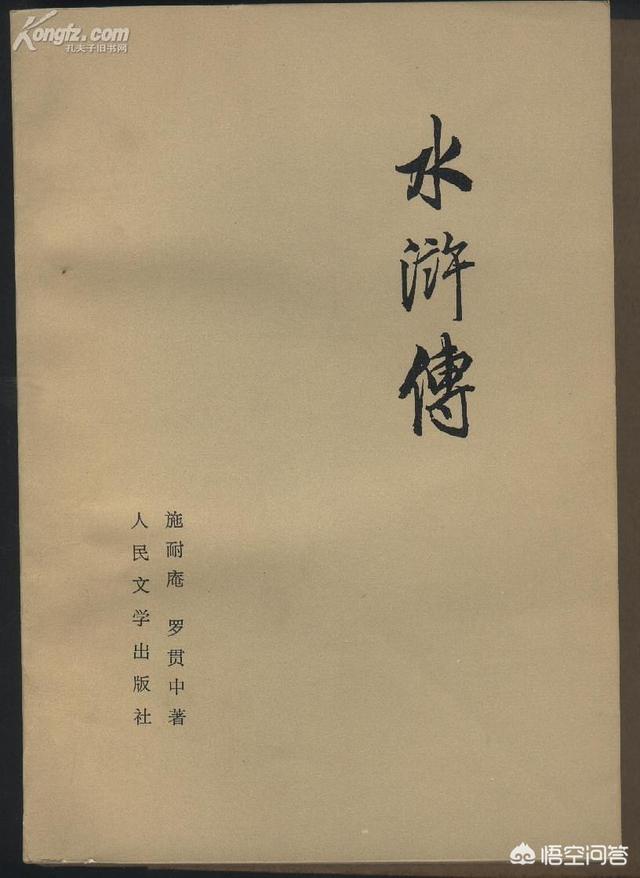 Kongfz.com
孔夫子旧书网
水滸傳
施耐庵 罗贯中著
人民文学出版社
悟空问答